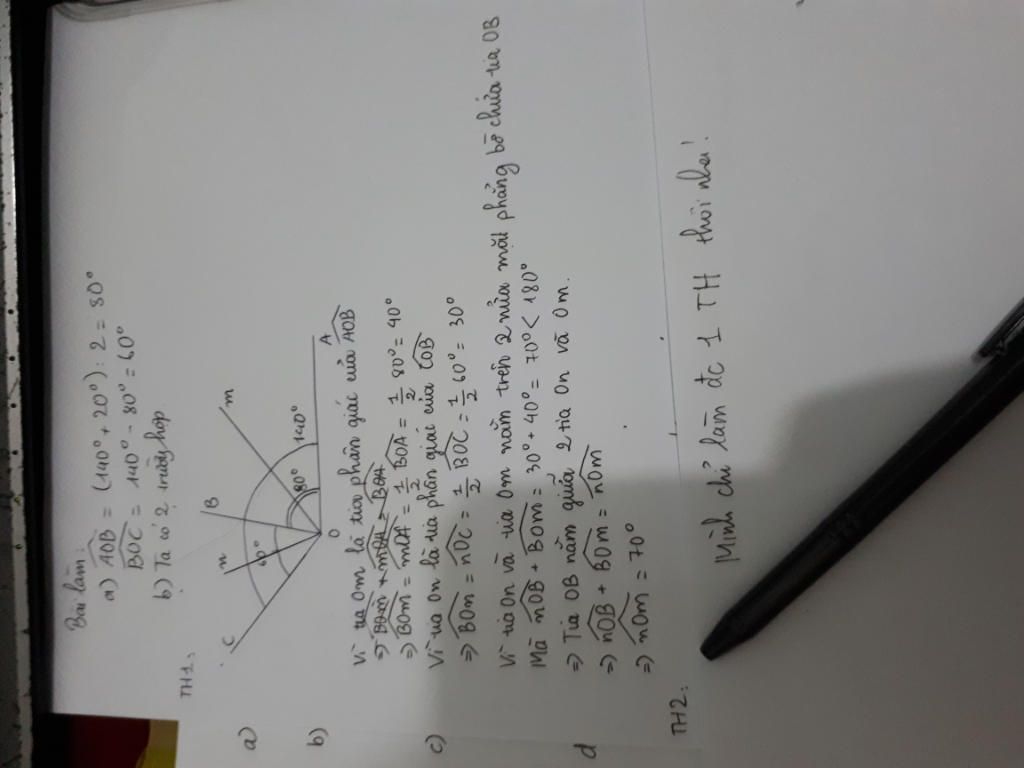 Bài làm:
a) AOB = (140° + 20°) : 2 = 80°
BOC = 140° - 80° = 60°
b) Ta có 2 trường hợp
TH1:
a)
C n B m A O
60° 80° 140°
b) Vì tia Om là tia phân giác của AOB
=> BOm + mOA = BOA
=> BOm = mOA = 1/2 BOA = 1/2 80° = 40°
c) Vì tia On là tia phân giác của COB
=> BOm = nOC = 1/2 BOC = 1/2 60° = 30°
Vì tia On và tia Om nằm trên 2 nửa mặt phẳng bờ chứa tia OB
Mà nOB + BOm = 30° + 40° = 70° < 180°
d => Tia OB nằm giữa 2 tia On và Om.
=> nOB + BOm = nOm
=> nOm = 70°
TH2:
Mình chỉ làm đc 1 TH thôi nha!